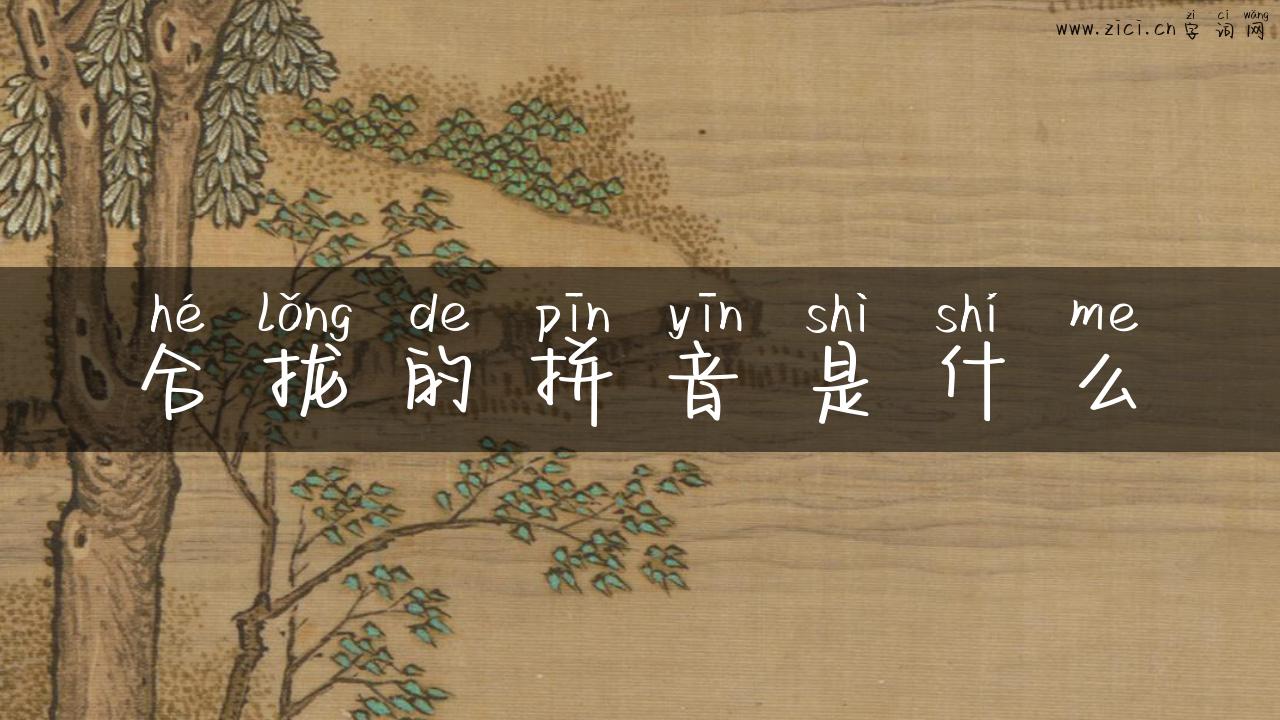 zì cí wǎng
www.zici.cn 字词网
hé lǒng de pīn yīn shì shí me
合拢的拼音是什么